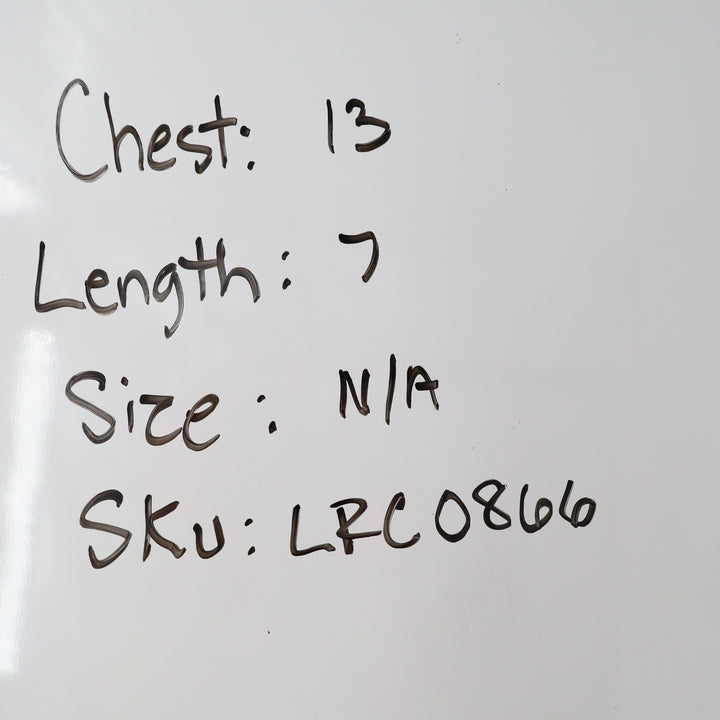 Chest: 13
Length: 7
Size: N/A
SKU: LRC0866